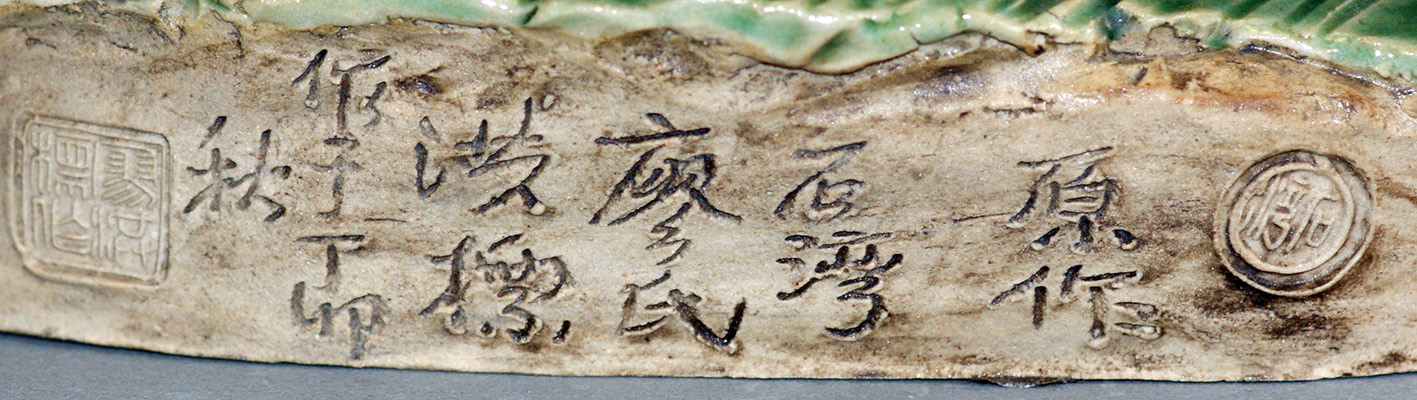 原作
石灣
廖氏
洪標
作于丁卯
秋